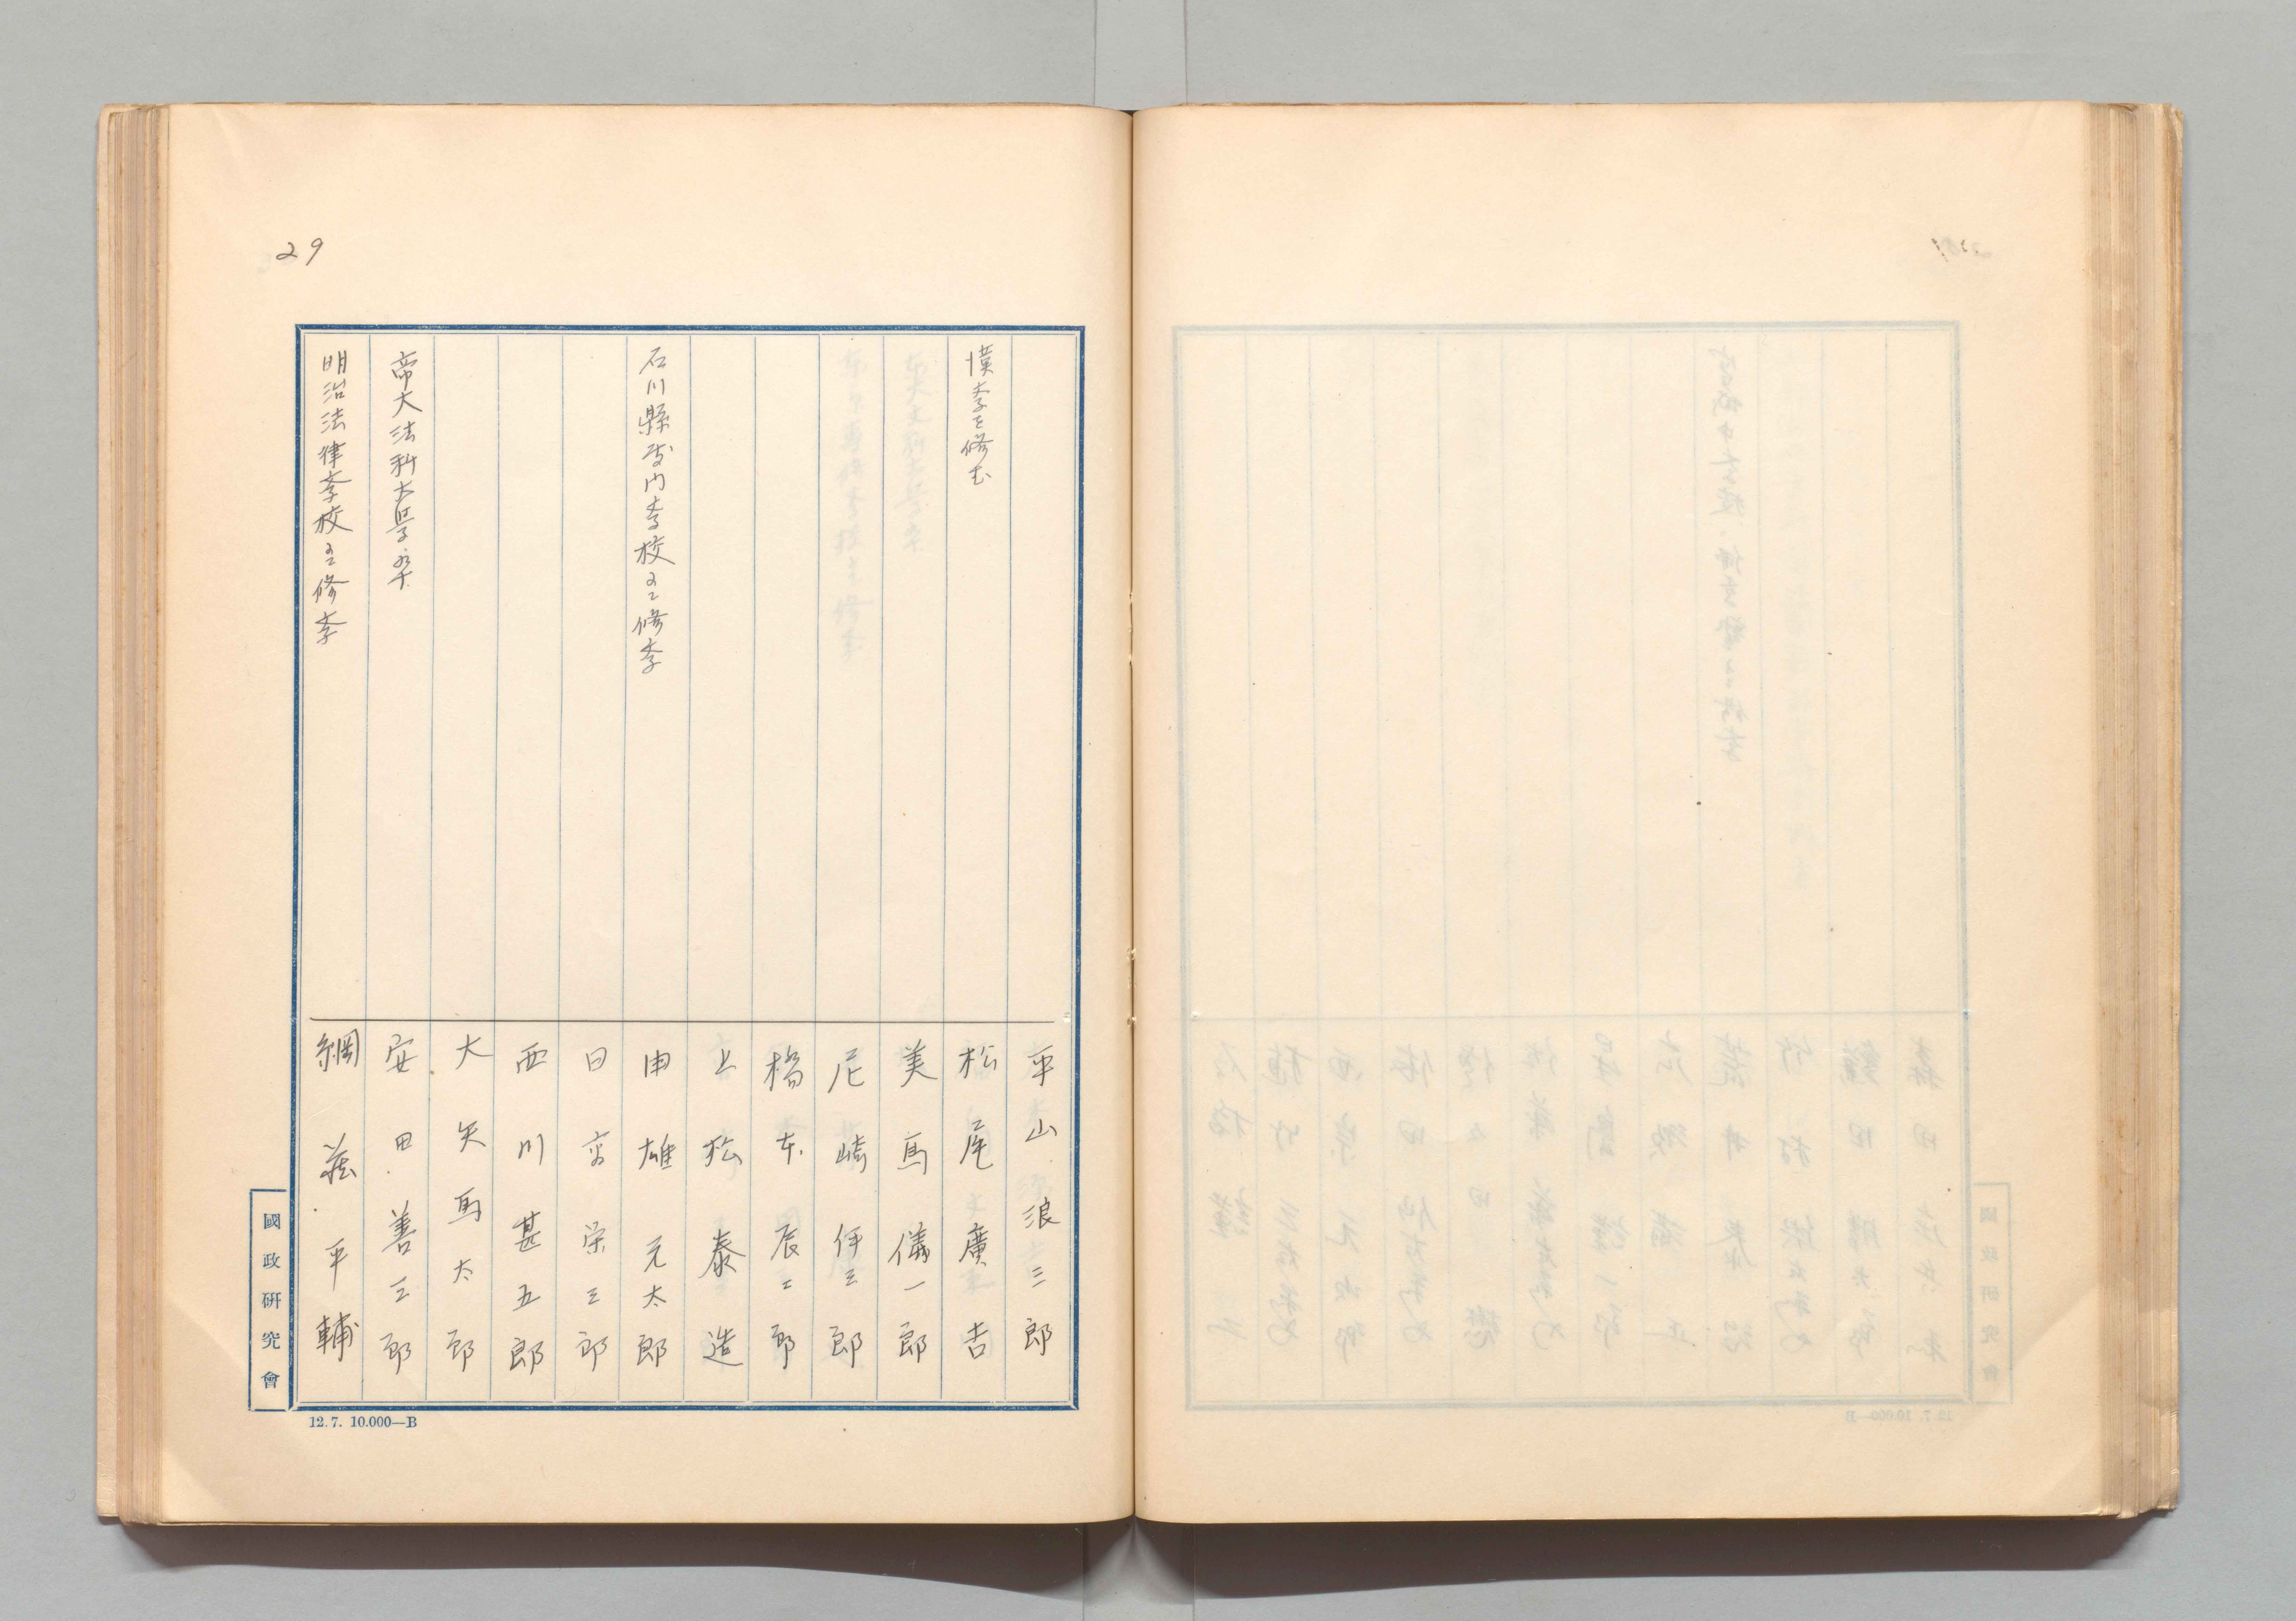 29
平山浪三郎
漢学を修む
松尾廣吉
美馬儀一郎
尼崎伊三郎
橋本辰二郎
上松泰造
石川縣 校
石川縣 門学校ニ修学
由雄元太郎
日高栄三郎
西川甚五郎
大矢馬太郎
帝大法科大学卒
安田善三郎
明治法律学校ニ修学
綱 平輔
國政研究會
12.7. 10.000—B